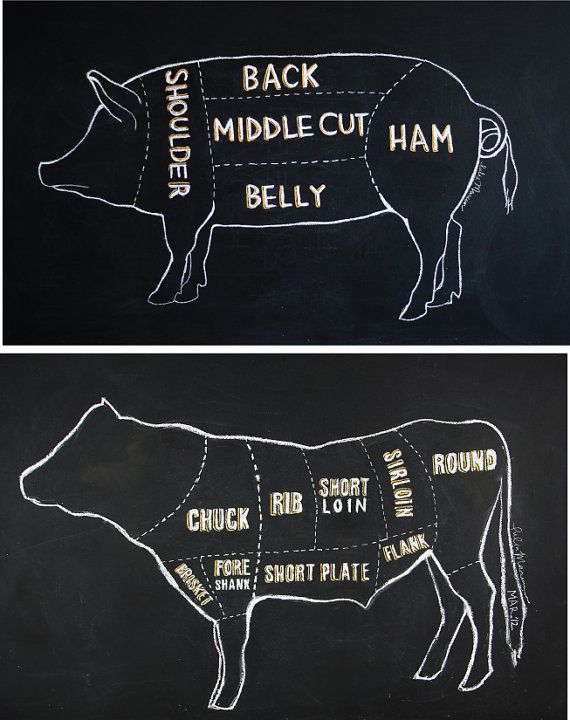 SHOULDER
BACK
MIDDLE CUT
HAM
BELLY
CHUCK
RIB
SHORT
LOIN
SIRLOIN
ROUND
BRISKET
FORE
SHANK
SHORT PLATE
FLANK
MAR. '12